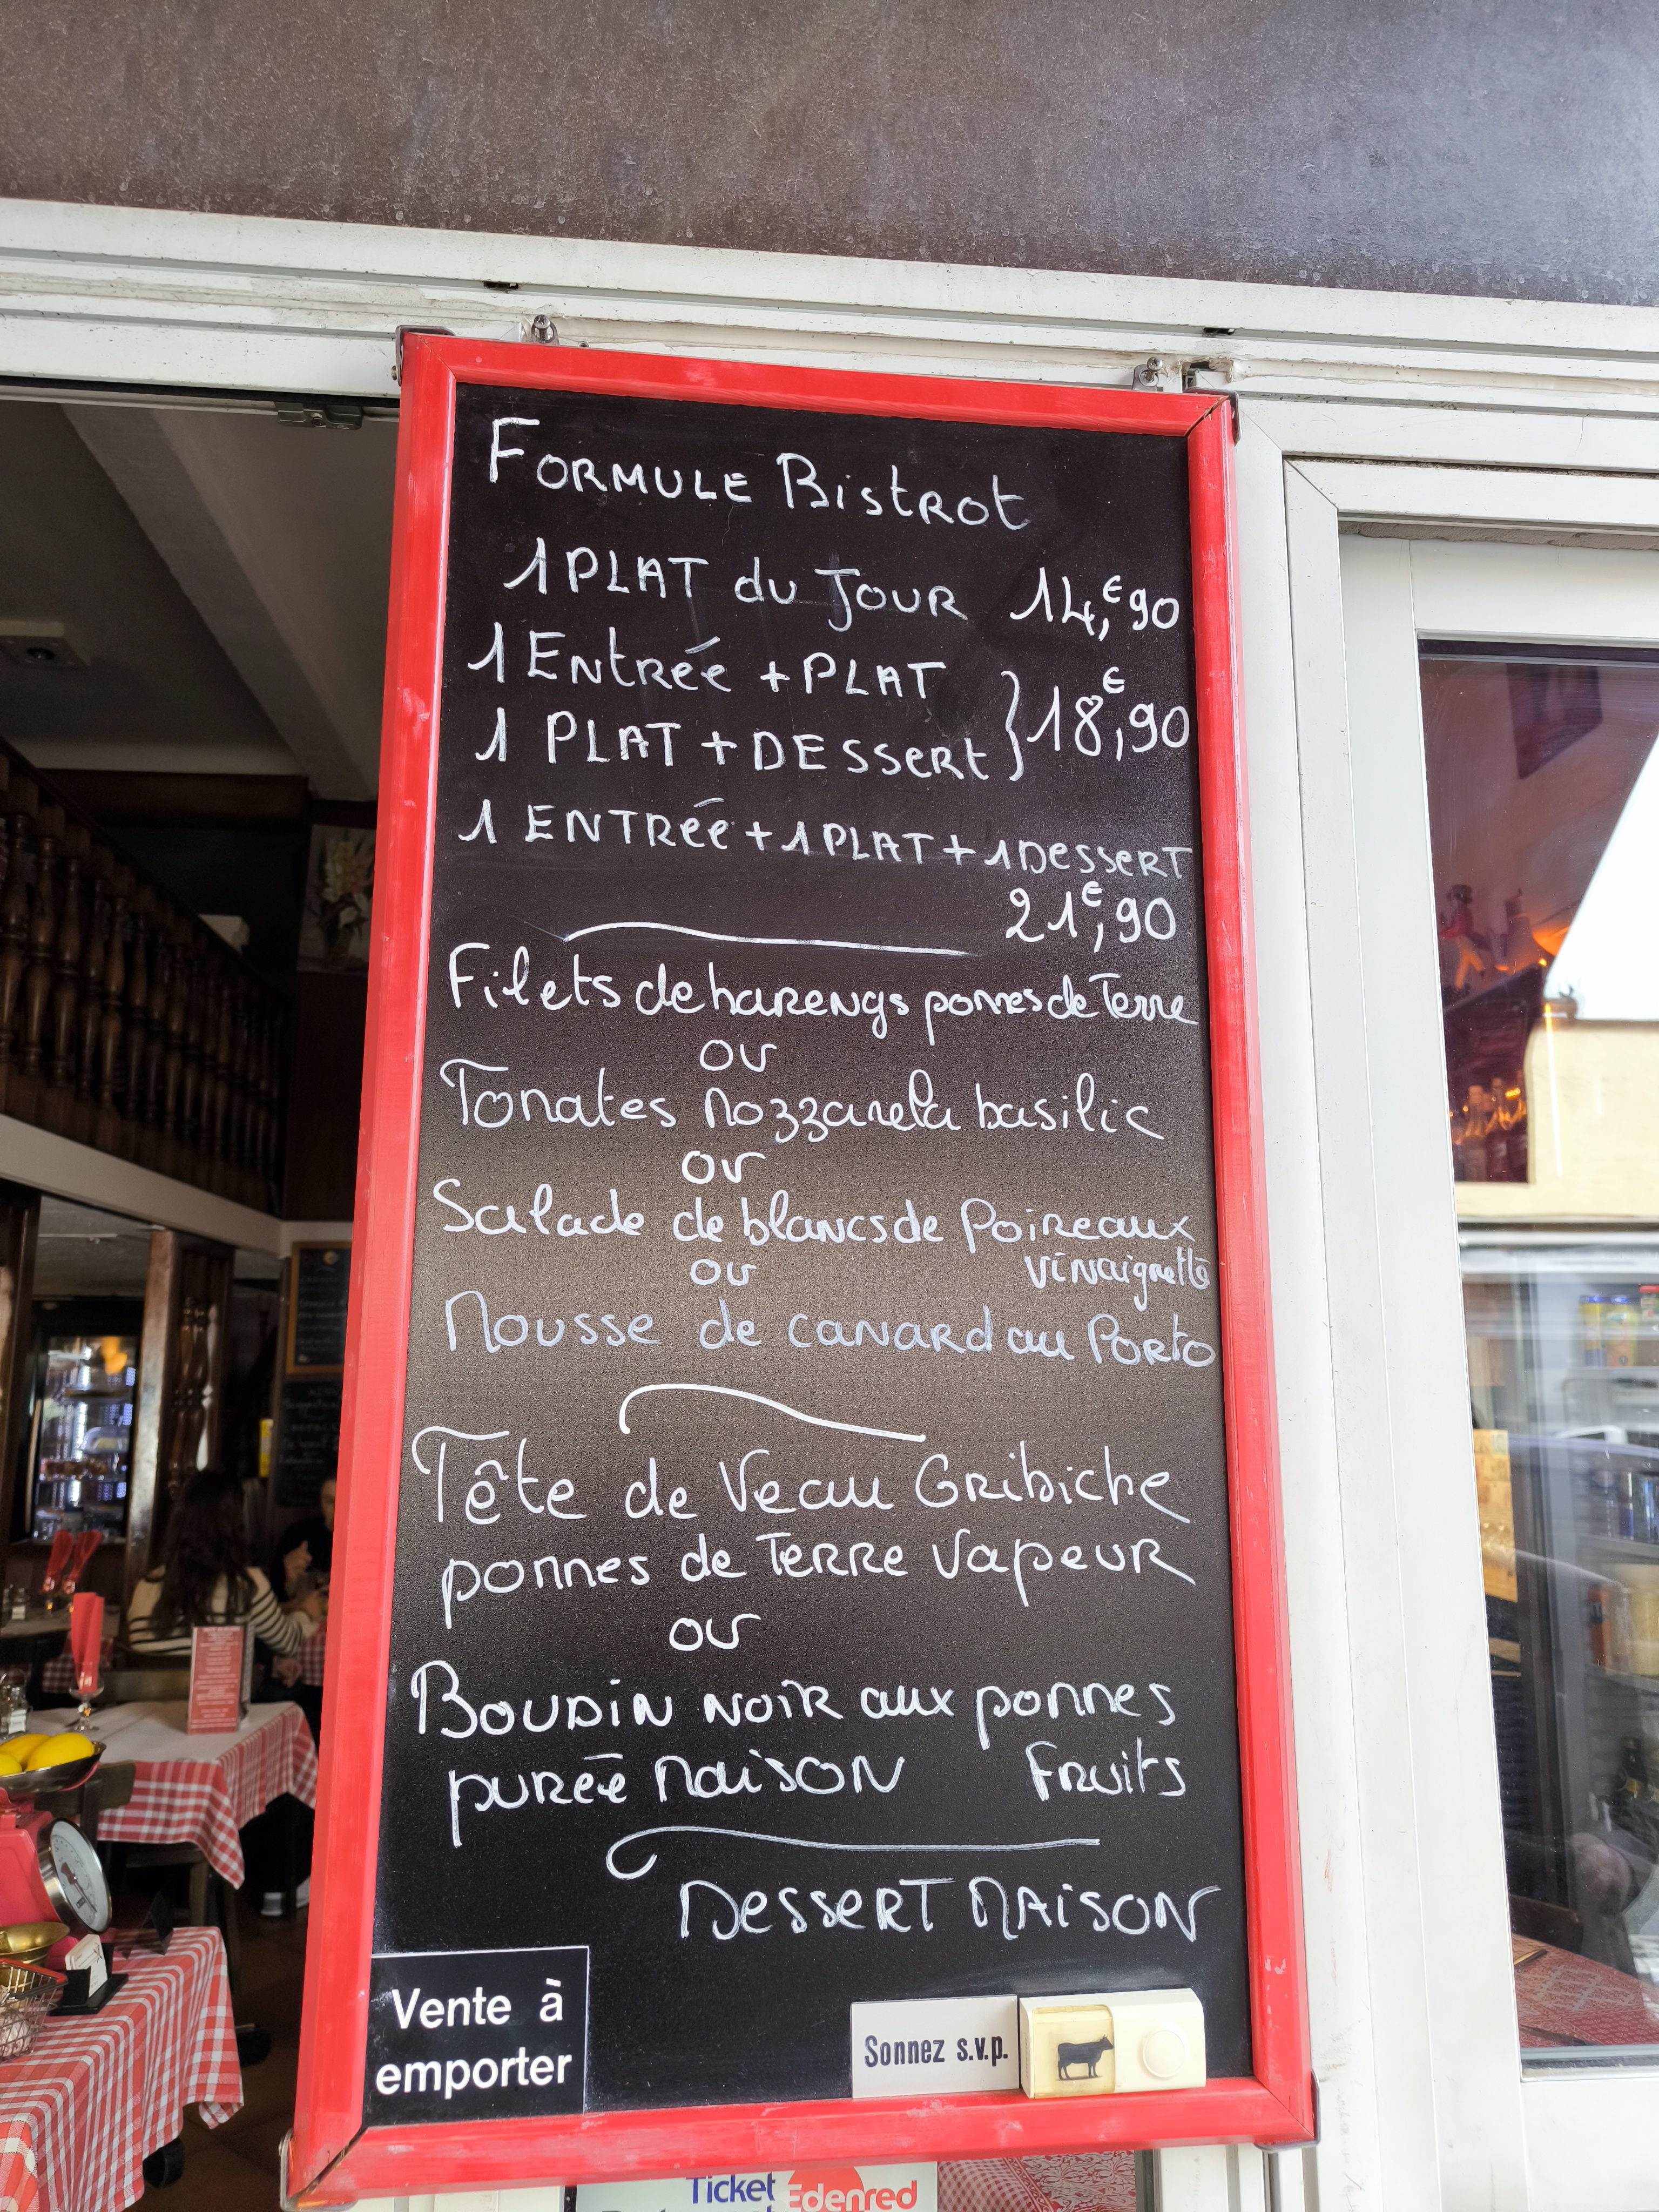 FORMULE BistRot
1 PLAT du JOUR 14,€90
1 ENtRéé + PLAT
1 PLAT + DESseRt } 18,€90
1 ENTRéé + 1 PLAT + 1 DesseRT
21,€90
Filets de harengs pommes de Terre
ou
Tomates Mozzarela basilic
ou
Salade de blancs de Poireaux
ou vinaigrette
Mousse de canard au Porto
Tête de Veau Gribiche
pommes de Terre Vapeur
ou
Boudin noir aux pommes
purée maison Fruits
Dessert Maison
Vente à
emporter
Sonnez s.v.p.
Ticket Edenred